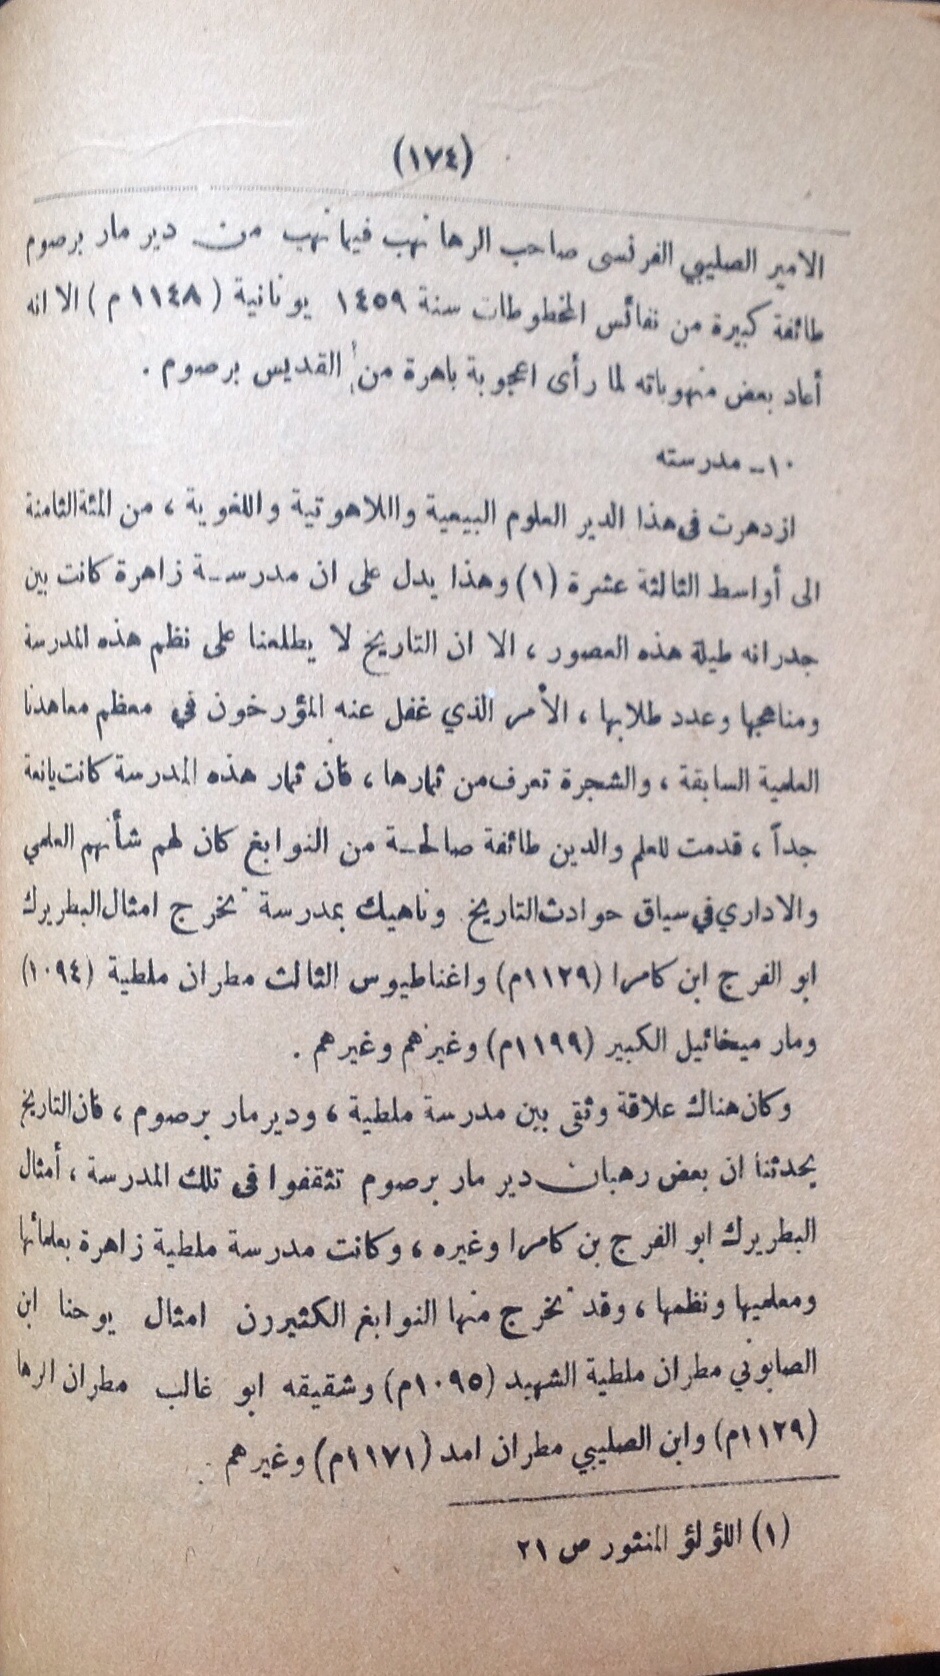 (١٧٤)
الامير الصليبي الفرنسى صاحب الرها نهب فيما نهب من دير مار برصوم
طائفة كبيرة من نفائس المخطوطات سنة ١٤٥٩ يونانية ( ١١٤٨ م ) الا انه
أعاد بعض منهوباته لما رأى اعجوبة باهرة من القديس برصوم .
١٠ـ مدرسته
ازدهرت في هذا الدير العلوم البيعية واللاهوتية واللغوية ، من المئة الثامنة
الى أواسط الثالثة عشرة (١) وهذا يدل على ان مدرسـة زاهرة كانت بين
جدرانه طيلة هذه العصور ، الا ان التاريخ لا يطلعنا على نظم هذه المدرسة
ومناهجها وعدد طلابها ، الأمر الذي غفل عنه المؤرخون في معظم معاهدنا
العلمية السابقة ، والشجرة تعرف من ثمارها ، فان ثمار هذه المدرسة كانت يانعة
جداً ، قدمت للعلم والدين طائفة صالحـة من النوابغ كان لهم شأنهم العلمي
والاداري في سياق حوادث التاريخ وناهيك بمدرسة تخرج امثال البطريرك
ابو الفرج ابن كامرا (١١٢٩م) واغناطيوس الثالث مطران ملطية (١٠٩٤)
ومار ميخائيل الكبير (١١٩٩م) وغيرهم وغيرهم .
وكان هناك علاقة وثقى بين مدرسة ملطية ، ودير مار برصوم ، فان التاريخ
يحدثنا ان بعض رهبان دير مار برصوم تثقفوا في تلك المدرسة ، أمثال
البطريرك ابو الفرج بن كامرا وغيره ، وكانت مدرسة ملطية زاهرة بعلمائها
ومعلميها ونظمها ، وقد تخرج منها النوابغ الكثيرون امثال يوحنا ابن
الصابوني مطران ملطية الشهيد (١٠٩٥م) وشقيقه ابو غالب مطران الرها
(١١٢٩م) وابن الصليبي مطران امد (١١٧١م) وغيرهم .
(١) اللؤلؤ المنثور ص ٢١